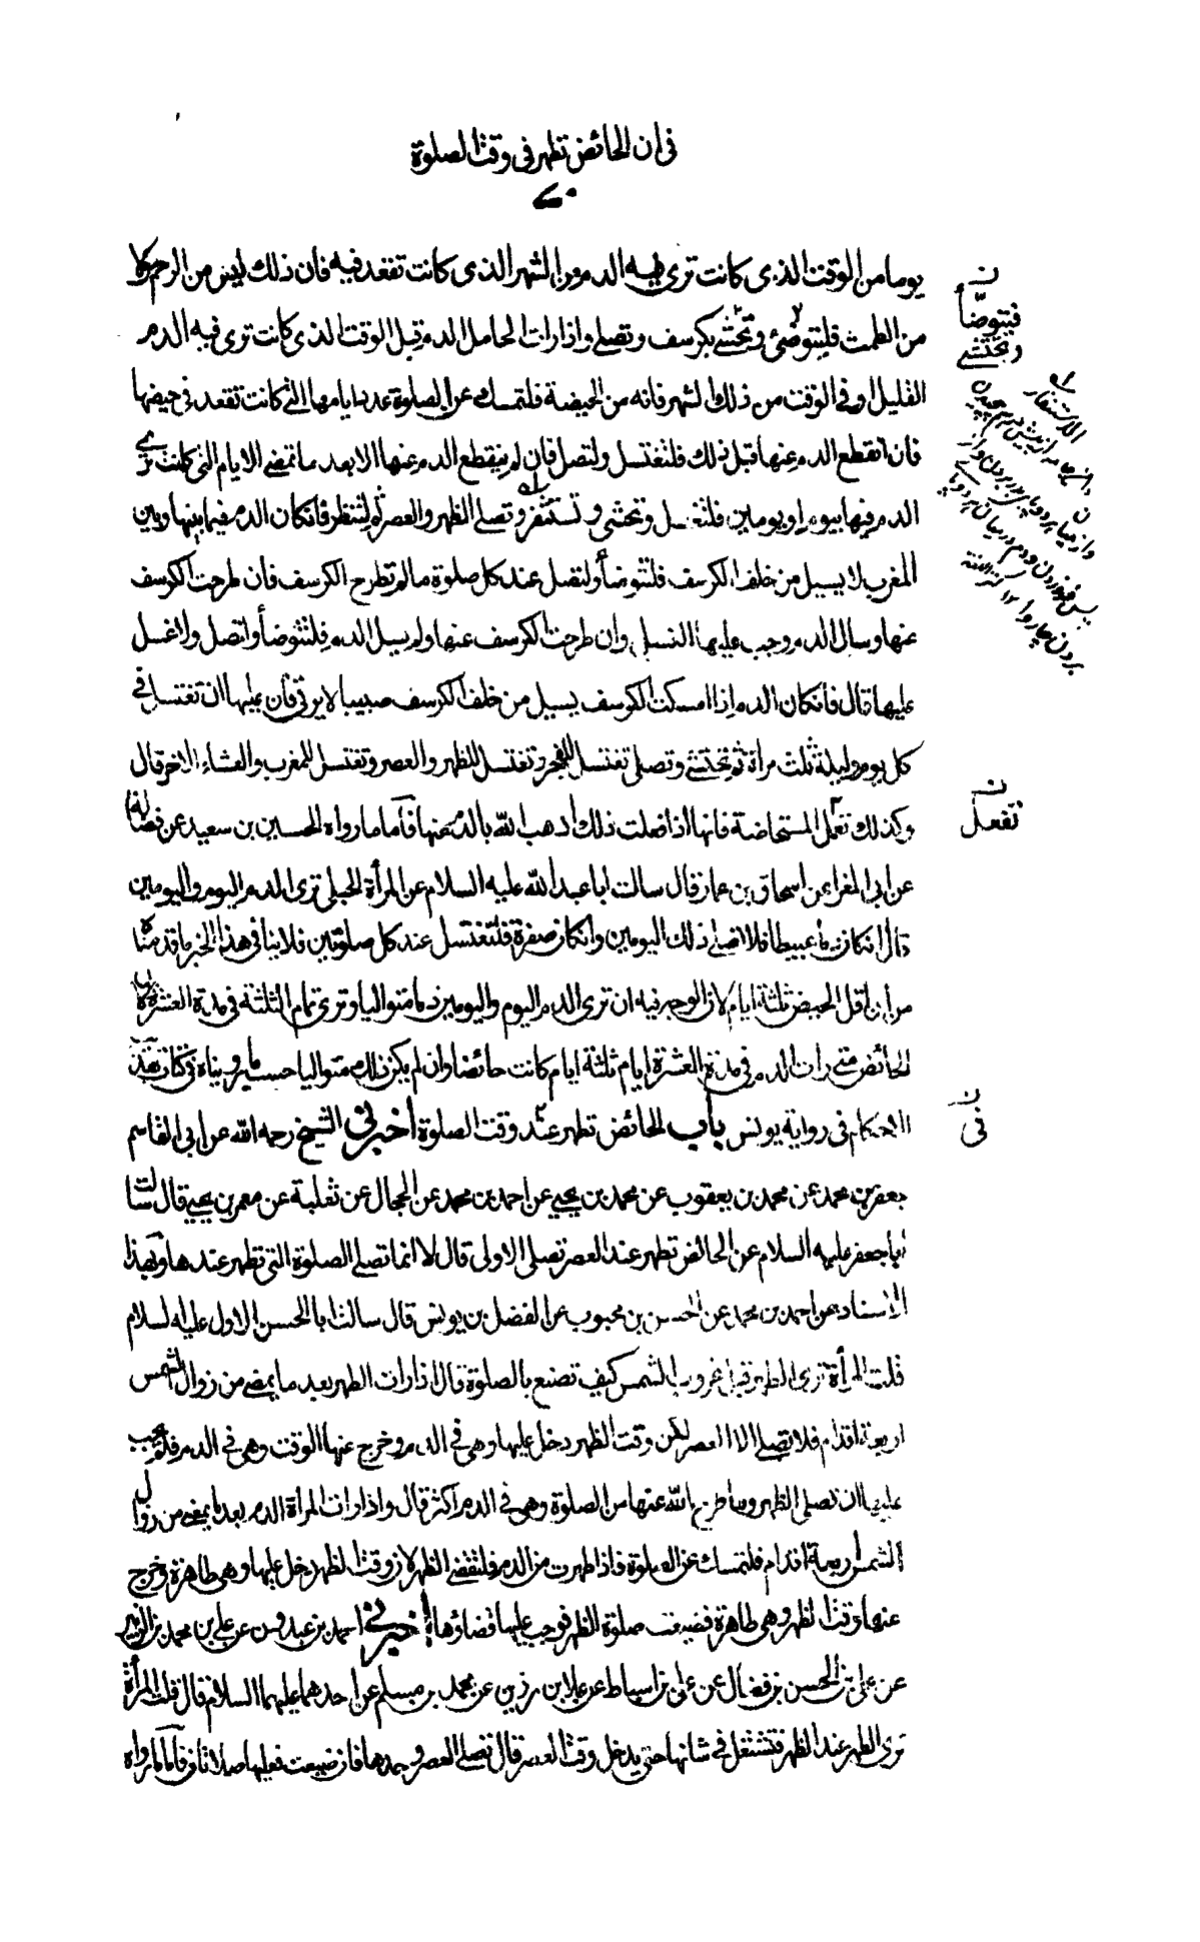 فى ان الحائض تطهر فى وقت الصلوة
يوما من الوقت الذى كانت ترى فيه الدم من الشهر الذى كانت تقعد فيه فان ذلك ليس من الرحم ولا
من الطمث فليتوضئ وتحتشى بكرسف وتصلى واذا رات الحامل الدم قبل الوقت الذى كانت ترى فيه الدم
القليل او فى الوقت من ذلك الشهر فانه من الحيضة فلتمسك عن الصلوة عدد ايامها التى كانت تقعد فى حيضها
فان انقطع الدم عنها قبل ذلك فلتغتسل ولتصل فان لم ينقطع الدم عنها الا بعد ما تمضى الايام التى كانت ترى
الدم فيها بيوم او يومين فلتغتسل وتحتشى وتستثفر وتصلى الظهر والعصر ثم لتنظر فان كان الدم فيما بينها وبين
المغرب لا يسيل من خلف الكرسف فلتتوضأ ولتصل عند كل صلوة ما لم تطرح الكرسف فان طرحت الكرسف
عنها وسال الدم وجب عليها الغسل وان طرحت الكرسف عنها ولم يسل الدم فلتتوضأ ولتصل ولا غسل
عليها قال فان كان الدم اذا امسكت الكرسف يسيل من خلف الكرسف صبيبا لا يرقئ فان عليها ان تغتسل فى
كل يوم وليلة ثلث مراة ثم تحتشى وتصلى تغتسل للفجر وتغتسل للظهر والعصر وتغتسل للمغرب والعشاء الاخر قال
وكذلك تعمل المستحاضة فانها اذا فعلت ذلك اذهب الله بالدم عنها فاما ما رواه الحسين بن سعيد عن فضالة
عن ابى المغرا عن اسحاق بن عمار قال سالت ابا عبد الله عليه السلام عن المرأة الحبلى ترى الدم اليوم واليومين
قال ان كان دما عبيطا فلا تصلى ذلك اليومين وان كان صفرة فلتغتسل عند كل صلوتين فلا ينافى هذا الخبر ما قدمناه
من ان اقل الحيض ثلثة ايام لان الوجه فيه ان ترى الدم اليوم واليومين دما متواليا وترى تمام الثلثة فى مدة العشرة لان
الحائض متى رات الدم فى مدة العشرة ايام ثلثة ايام كانت حائضا وان لم يكن ذلك متواليا حسب ما رويناه فى كتاب تهذيب
الاحكام فى رواية يونس باب الحائض تطهر عند وقت الصلوة أخبرنى الشيخ رحمه الله عن ابى القاسم
جعفر بن محمد عن محمد بن يعقوب عن محمد بن يحيى عن احمد بن محمد عن الحجال عن ثعلبة عن معمر بن يحيى قال سالت
ابا جعفر عليه السلام عن الحائض تطهر عند العصر تصلى الاولى قال لا انما تصلى الصلوة التى تطهر عندها وبهذا
الاسناد عن احمد بن محمد عن الحسن بن محبوب عن الفضل بن يونس قال سالت ابا الحسن الاول عليه السلام
قلت المرأة ترى الطهر قبل غروب الشمس كيف تصنع بالصلوة قال اذا رات الطهر بعد ما يمضى من زوال الشمس
اربعة اقدام فلا تصلى الا العصر لان وقت الظهر دخل عليها وهى فى الدم وخرج عنها الوقت وهى فى الدم فلم يجب
عليها ان تصلى الظهر وما طرح الله عنها من الصلوة وهى فى الدم اكثر قال واذا رات المرأة الدم بعد ما يمضى من زوال
الشمس اربعة اقدام فلتمسك عن الصلوة فاذا طهرت من الدم فلتقض الظهر لان وقت الظهر دخل عليها وهى طاهرة وخرج
عنها وقت الظهر وهى طاهرة فضيعت صلوة الظهر فوجب عليها قضاؤها أخبرنى احمد بن عبدون عن على بن محمد بن الزبير
عن على بن الحسن بن فضال عن على بن اسباط عن علا بن رزين عن محمد بن مسلم عن احدهما عليهما السلام قال قلت المرأة
ترى الطهر عند الظهر فتشتغل فى شانها حتى يدخل وقت العصر قال تصلى العصر وحدها فان ضيعت فعليها صلاتان فاما ما رواه
ن
فيتوضأ
وتحتشى
الاستثفار
ن
تفعل
ن
فى